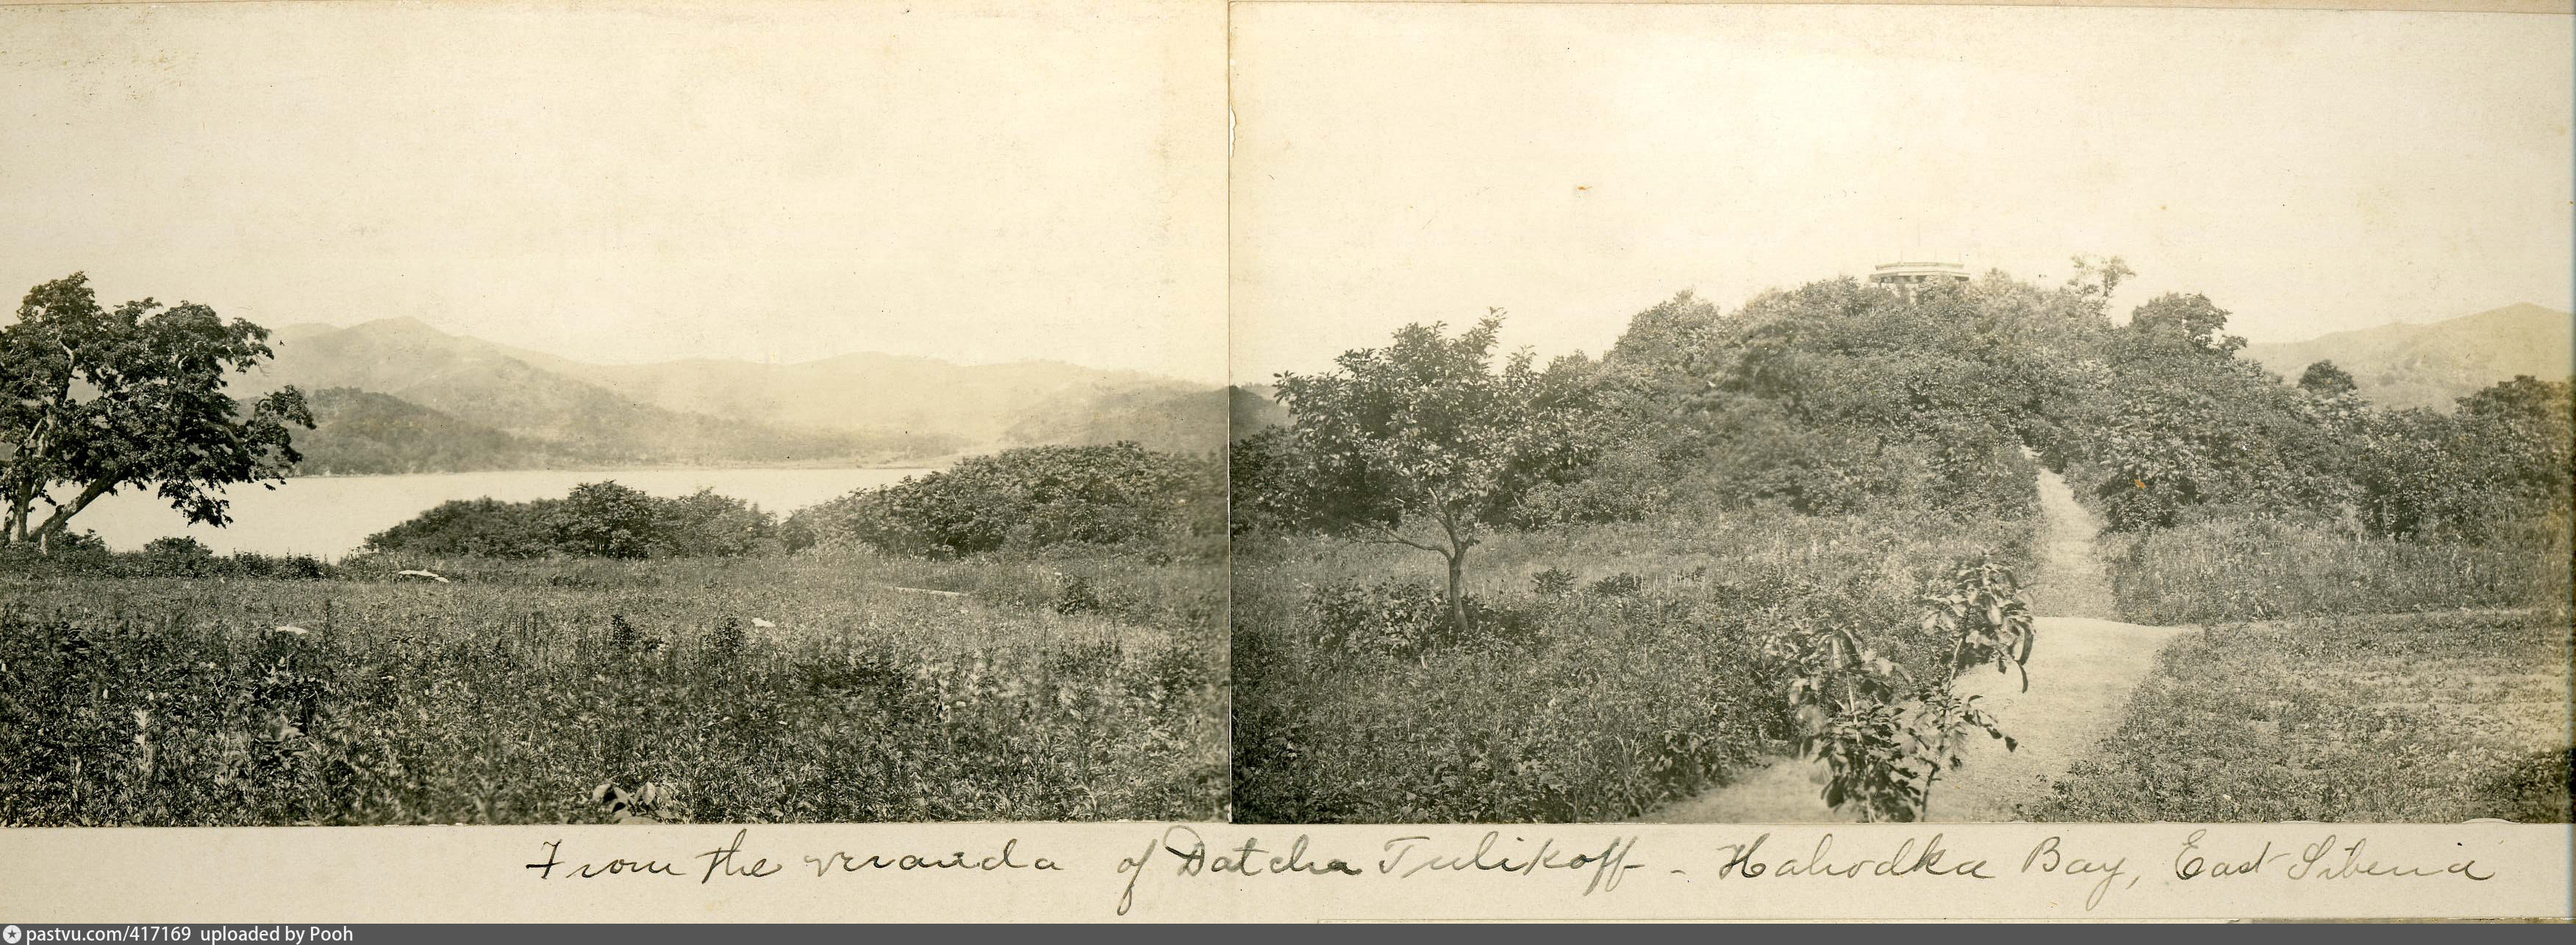 From the veranda of Datcha Tulikoff - Hahodka Bay, East Siberia
pastvu.com/417169 uploaded by Pooh